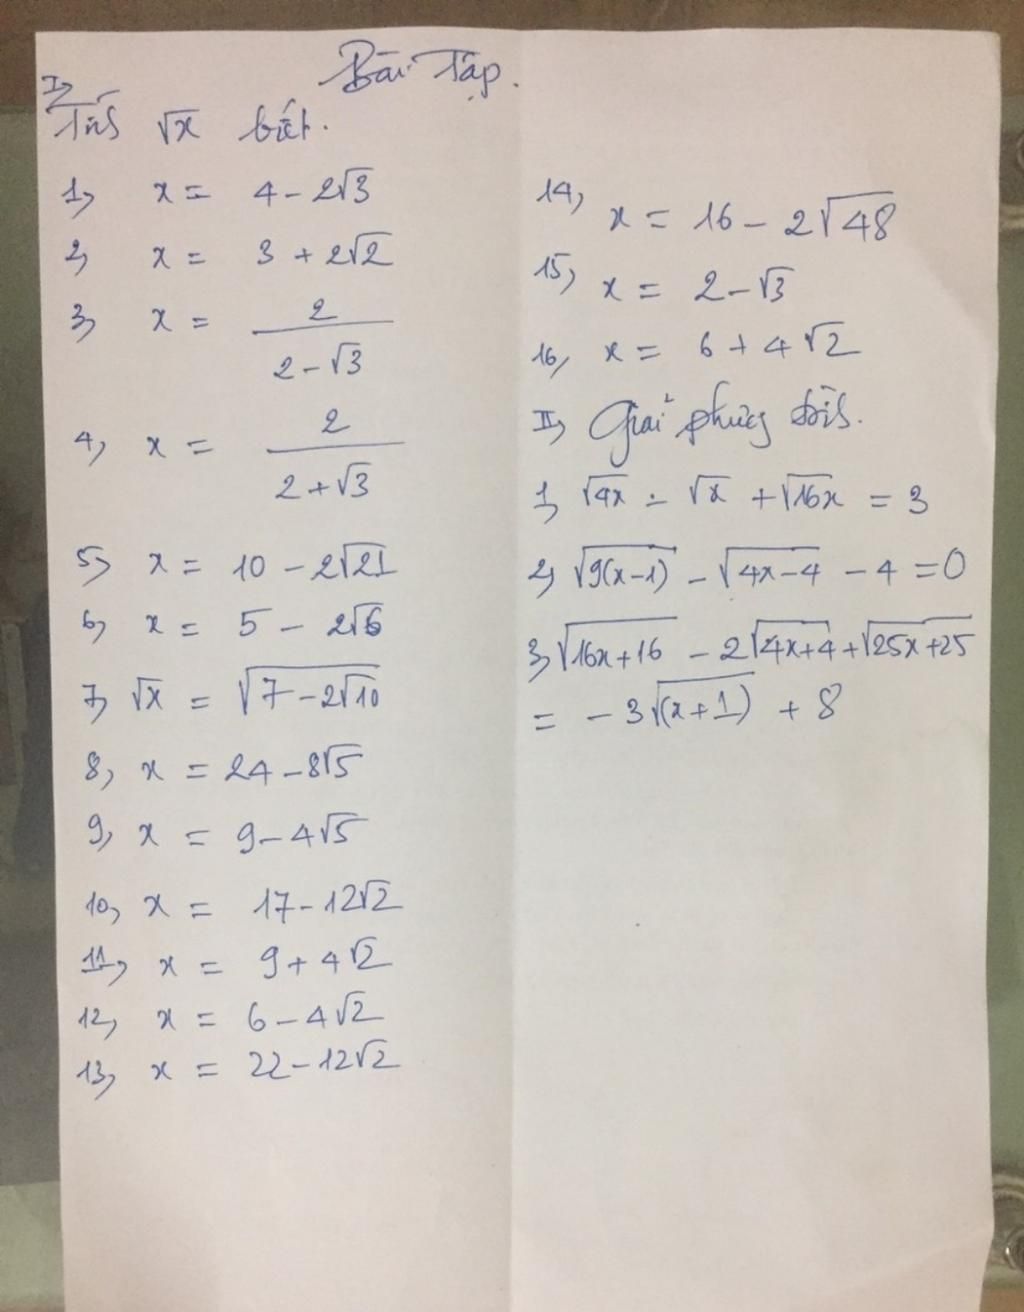 Bài Tập.
I,
Tính √x biết.
1, x = 4 - 2√3
2, x = 3 + 2√2
3, x = 2/(2-√3)
4, x = 2/(2+√3)
5, x = 10 - 2√21
6, x = 5 - 2√6
7, √x = √(7-2√10)
8, x = 24 - 8√5
9, x = 9 - 4√5
10, x = 17 - 12√2
11, x = 9 + 4√2
12, x = 6 - 4√2
13, x = 22 - 12√2
14, x = 16 - 2√48
15, x = 2 - √3
16, x = 6 + 4√2
II, Giải phương trình.
1, √4x - √x + √16x = 3
2, √9(x-1) - √4x-4 - 4 = 0
3, √16x+16 - 2√4x+4 + √25x+25
= - 3√(x+1) + 8